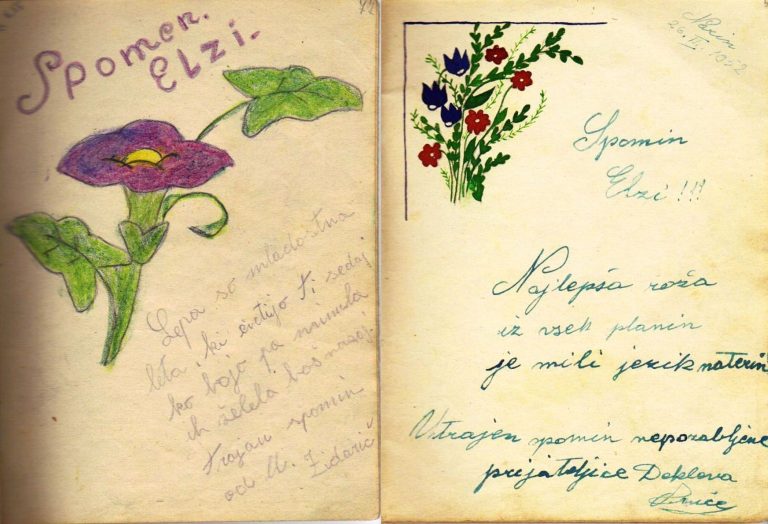 Spomen.
Elzi.
Lepa so mladostna
leta, ki cvetijo ti sedaj
ko bojo pa minula
ih želela boš nazaj.
Trajau spomin
od M. Židarič
26. II 1952
Spomin
Elzi!!!
Najlepša roža
iz vseh planin
je mili jezik materin
V trajen spomin nepozabljene
prijateljice Doklova